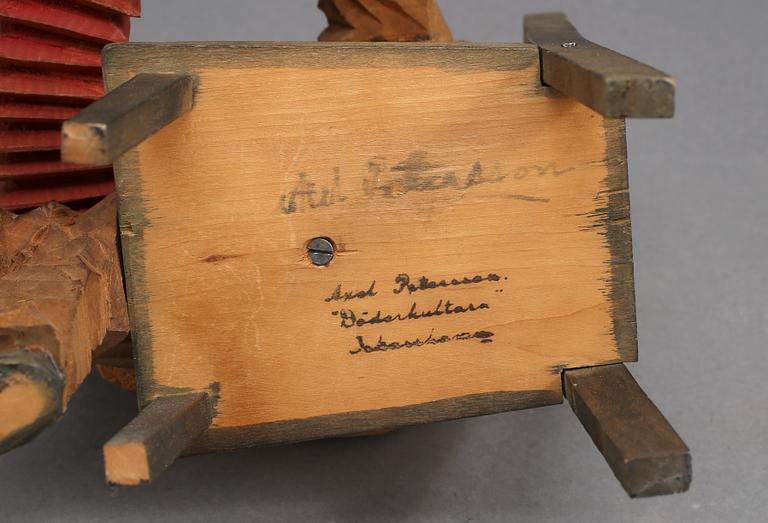 Axel Petersson
Axel Petersson.
"Döderhultarn"
Oskarshamn